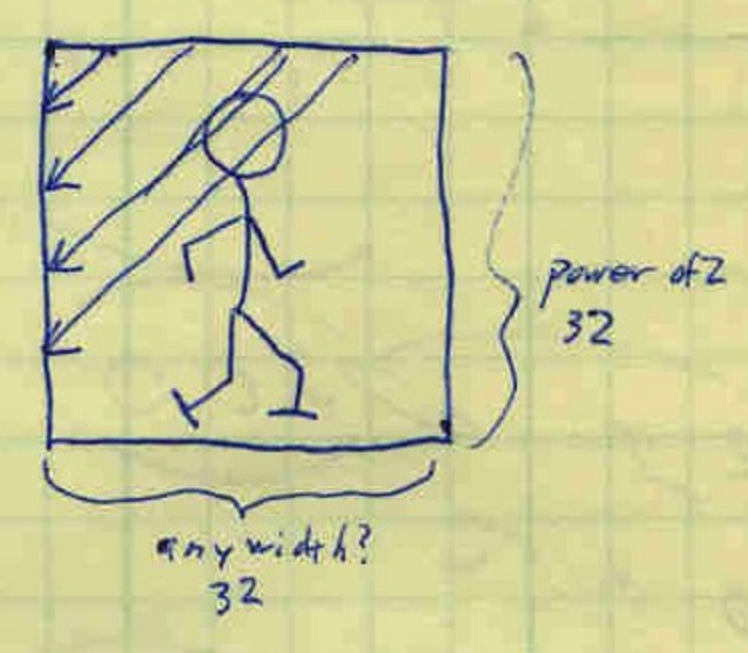 power of 2
32
any width?
32